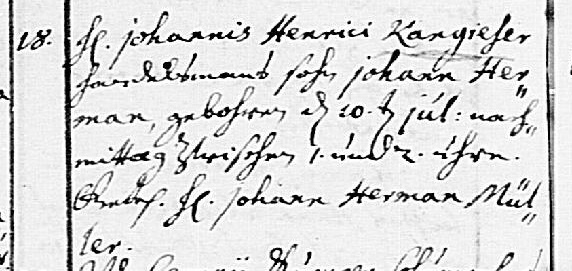 18. H. Johannis Henrici Kangieser
handelsmans sohn Johann Her„
man, gebohren d 10.t Jul: nach„
mittag Zwischen 1. und 2. Uhren.
H. Johann Herman Mül„
ler.